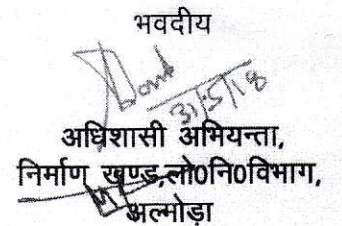 भवदीय
31/5/18
अधिशासी अभियन्ता,
निर्माण खण्ड,लो0नि0विभाग,
अल्मोड़ा